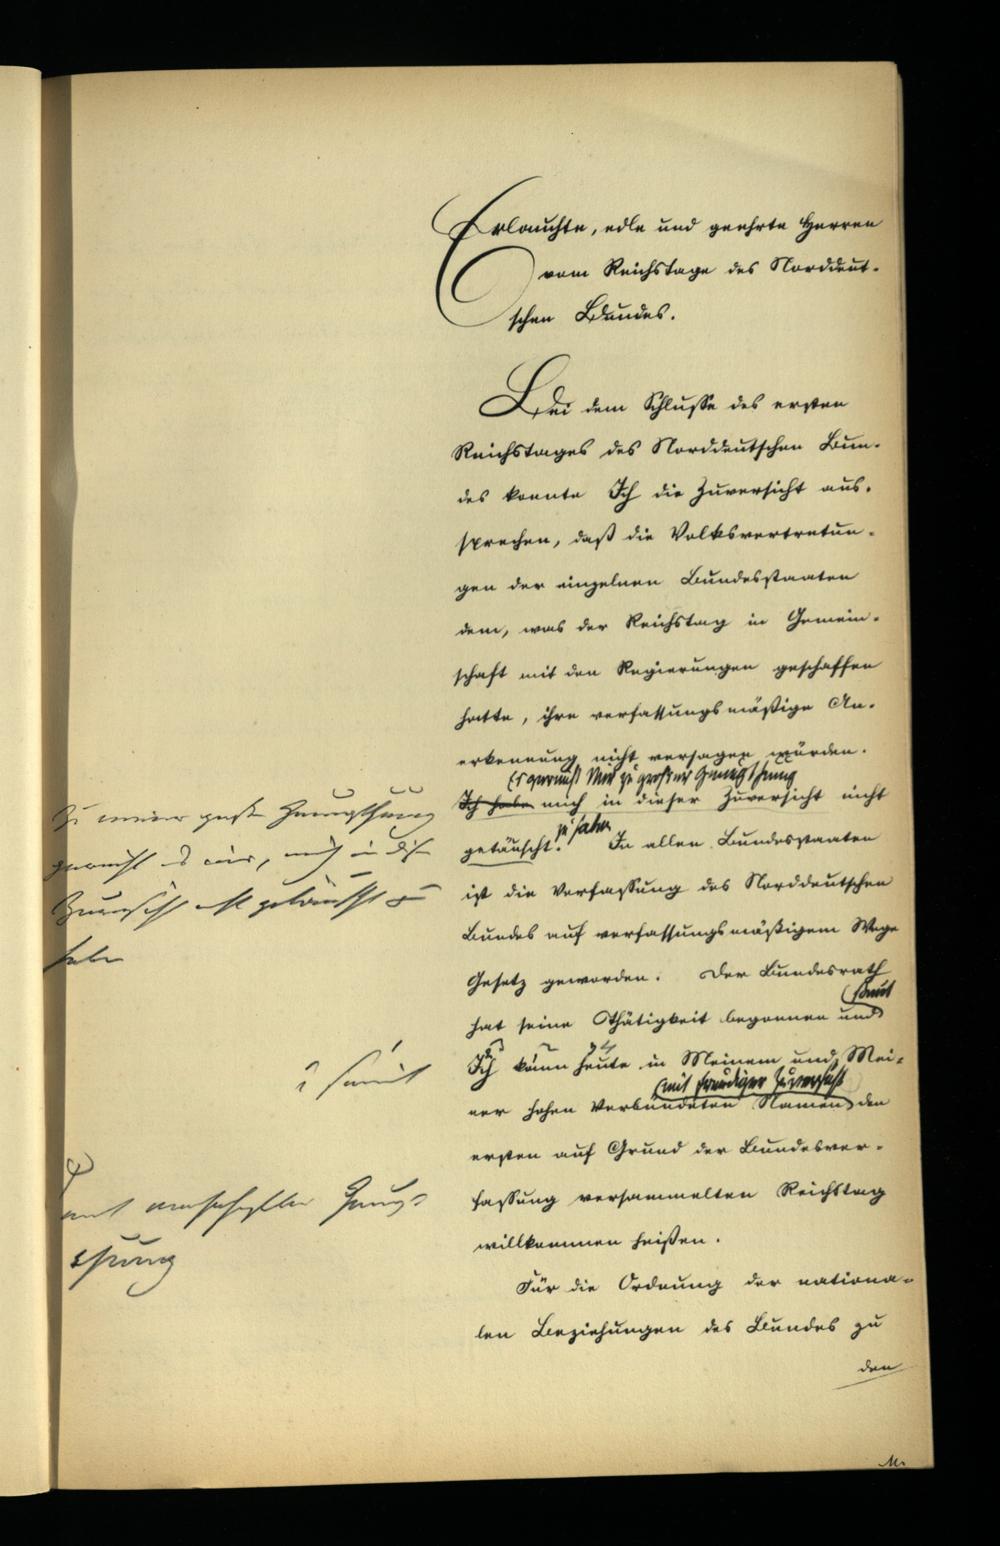 Erlauchte, edle und geehrte Herren
vom Reichstage des Norddeut-
schen Bundes.
Bei dem Schlusse des ersten
Reichstages des Norddeutschen Bun-
des konnte Ich die Zuversicht aus-
sprechen, daß die Volksvertretun-
gen der einzelnen Bundesstaaten
dem, was der Reichstag in Gemein-
schaft mit den Regierungen geschaffen
hatte, ihre verfassungsmäßige An-
erkennung nicht versagen würden.
Es gereicht Mir zu großer Genugthuung
Ich habe mich in dieser Zuversicht nicht
zu haben
getäuscht. In allen Bundesstaaten
ist die Verfassung des Norddeutschen
Bundes auf verfassungsmäßigem Wege
Gesetz geworden. Der Bundesrath
hat seine Thätigkeit begonnen und
somit
Ich kann heute in Meinem und Mei-
mit freudiger Zuversicht
ner hohen Verbündeten Namen den
ersten auf Grund der Bundesver-
fassung versammelten Reichstag
willkommen heißen.
Für die Ordnung der nationa-
len Beziehungen des Bundes zu
den
Zu meiner großen Genugthuung
gereicht es mir, mich in dieser
Zuversicht nicht getäuscht zu
haben
somit
mit